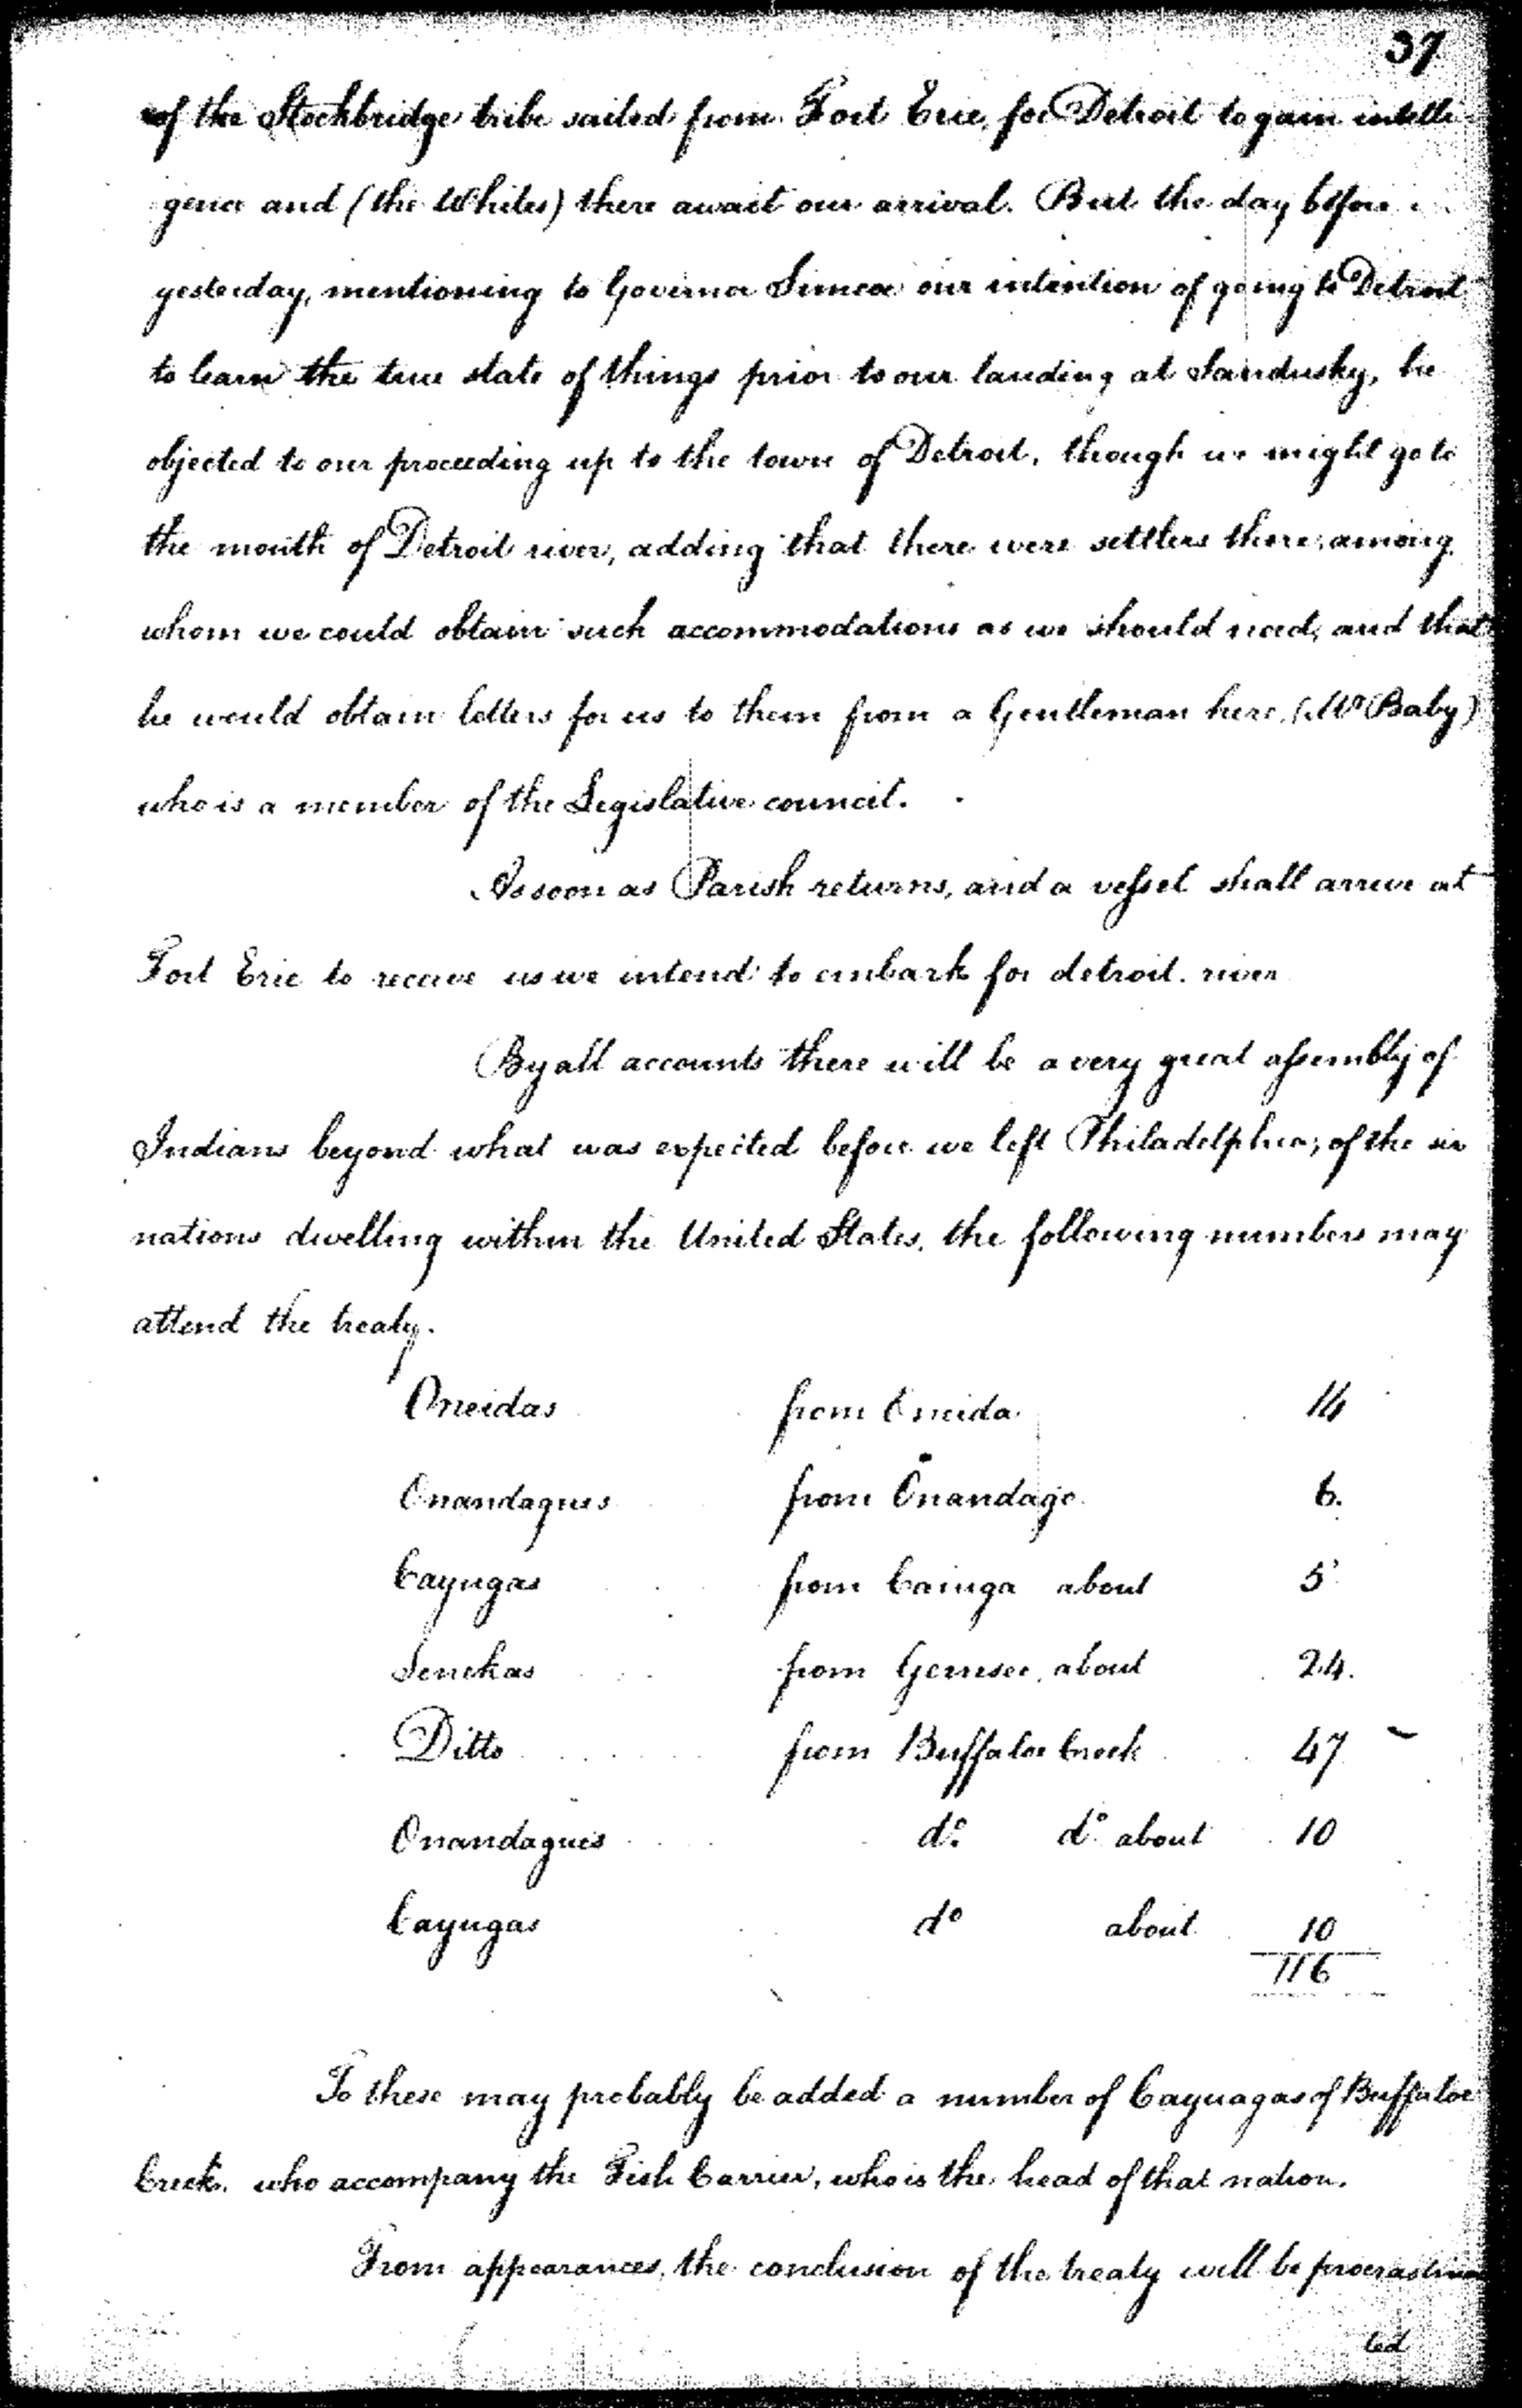 37
of the Stockbridge tribe sailed from Fort Erie, for Detroit to gain intelli-
gence and (the Whites) there await our arrival. But the day before
yesterday, mentioning to Governor Simcoe our intention of going to Detroit
to learn the true state of things prior to our landing at Sandusky, he
objected to our proceeding up to the town of Detroit, though we might go to
the mouth of Detroit river, adding that there were settlers there, among
whom we could obtain such accommodations as we should need, and that
he would obtain letters for us to them from a Gentleman here, (Mr Baby)
who is a member of the Legislative council.
As soon as Parish returns, and a vessel shall arrive at
Fort Erie to receive us we intend to embark for detroit. river
By all accounts there will be a very great assembly of
Indians beyond what was expected before we left Philadelphia; of the six
nations dwelling within the United States, the following numbers may
attend the treaty.
Oneidas from Oneida 14
Onandagues from Onandago 6.
Cayugas from Caiuga about 5
Senekas from Genesee, about 24.
Ditto from Buffaloe Creek 47
Onandagues do. do. about 10
Cayugas do about 10
116
To these may probably be added a number of Cayuagas of Buffaloe
Creek, who accompany the Fish Carrier, who is the head of that nation.
From appearances, the conclusion of the treaty will be procrastina
ted